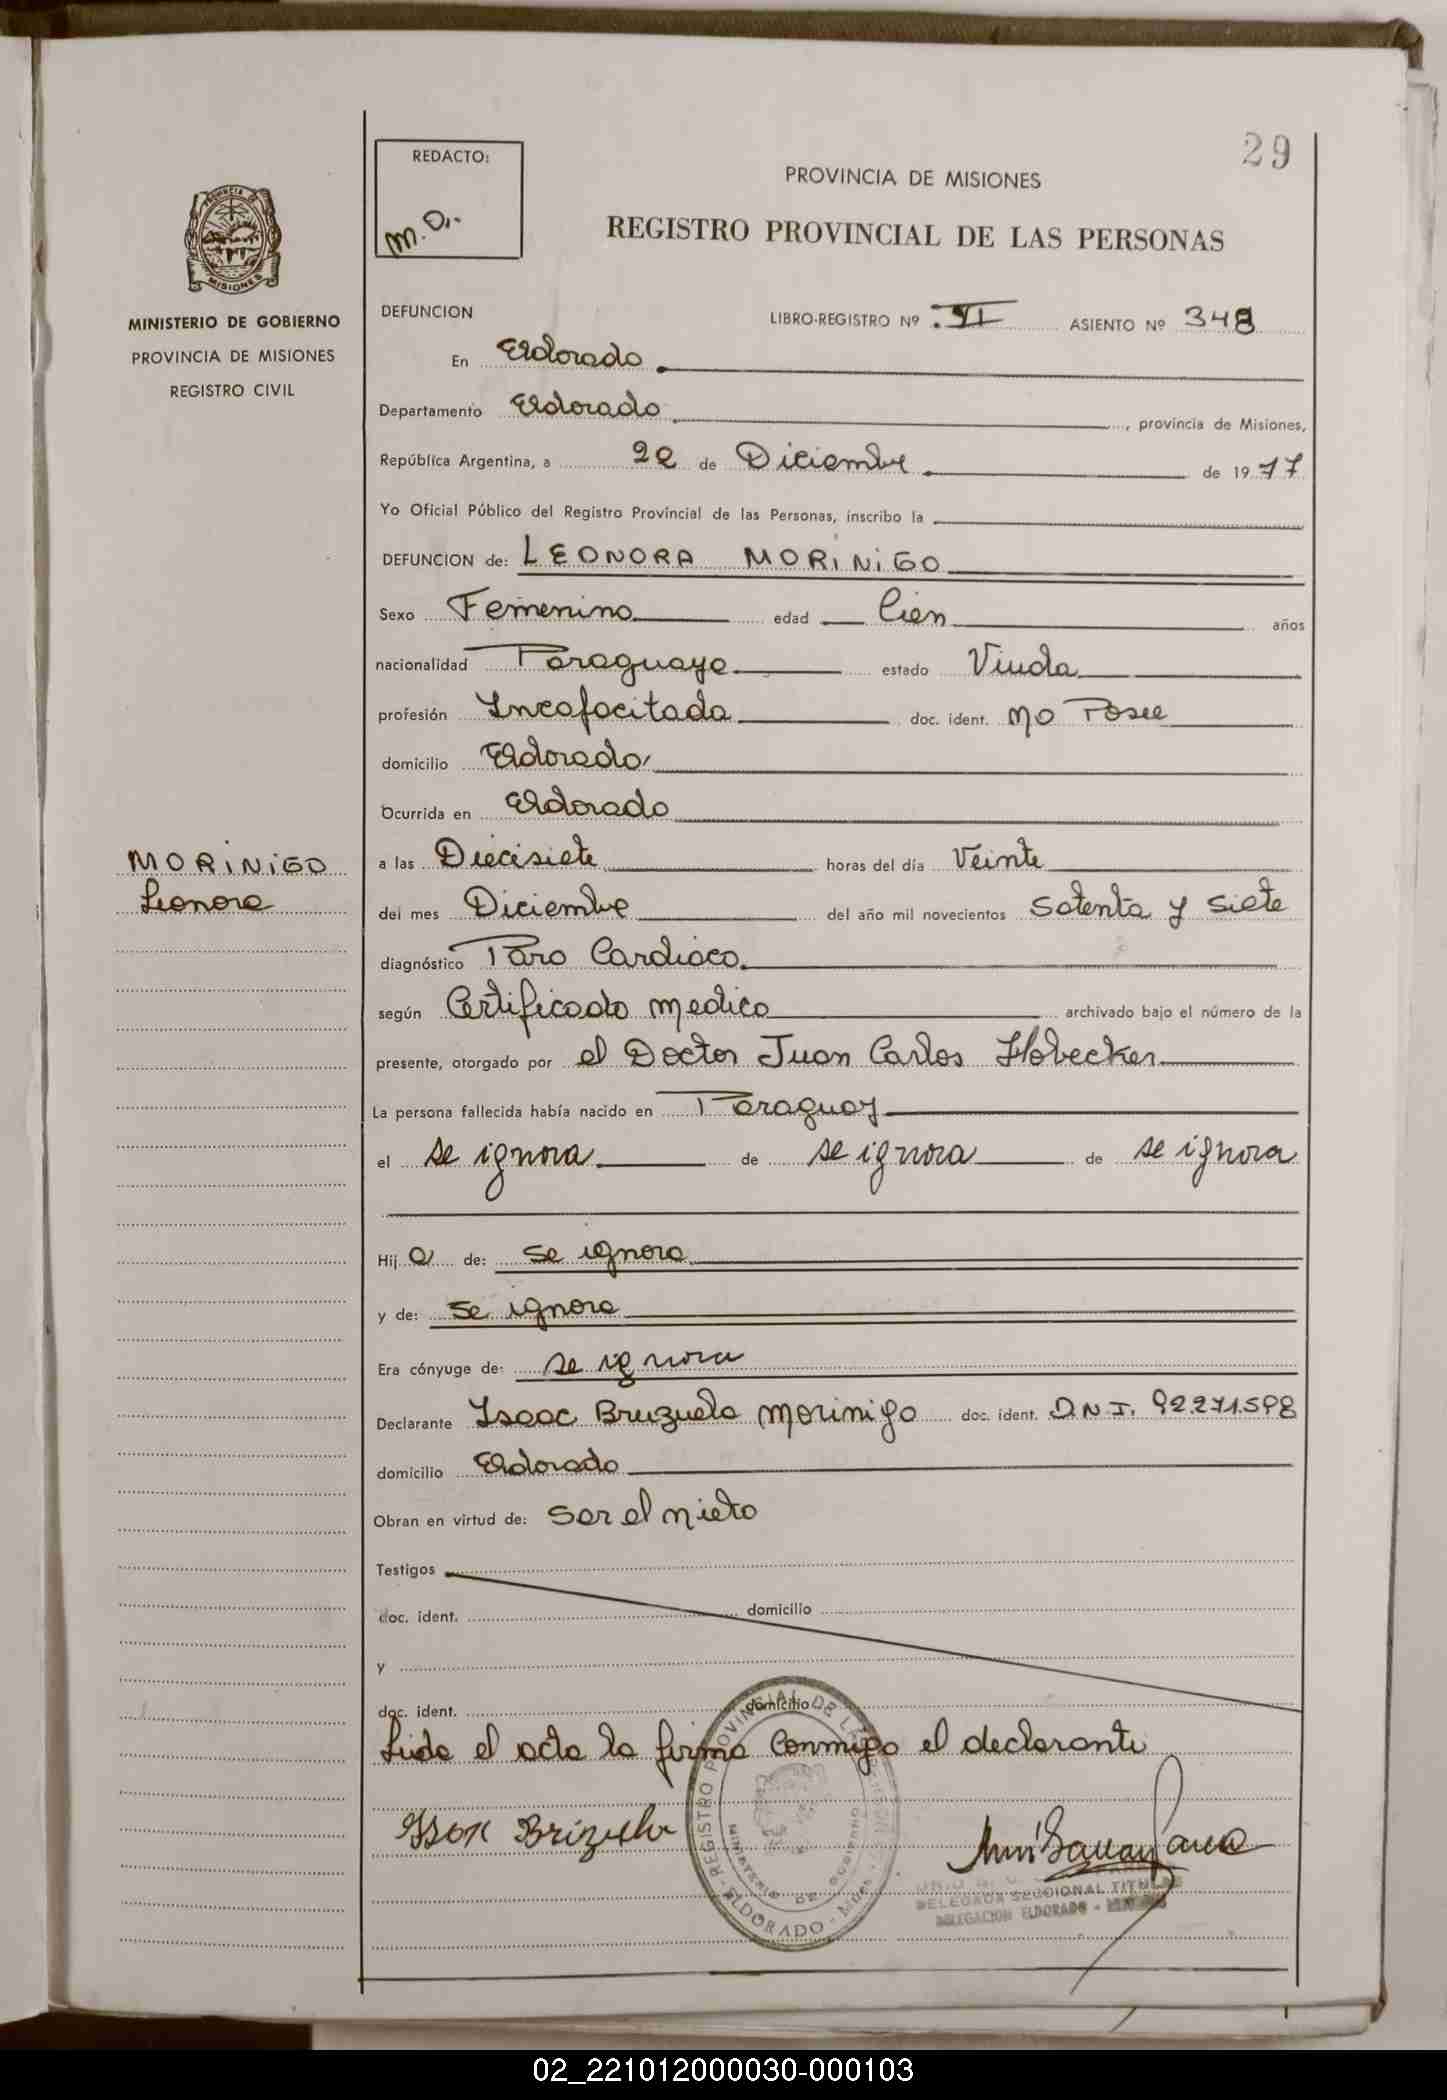 29
REDACTO:
M.O.-
PROVINCIA DE MISIONES
REGISTRO PROVINCIAL DE LAS PERSONAS
PROVINCIA DE
MISIONES
MINISTERIO DE GOBIERNO
PROVINCIA DE MISIONES
REGISTRO CIVIL
DEFUNCION LIBRO-REGISTRO Nº VI ASIENTO Nº 348
En Eldorado
Departamento Eldorado, provincia de Misiones,
República Argentina, a 22 de Diciembre de 1977
Yo Oficial Público del Registro Provincial de las Personas, inscribo la
DEFUNCION de: LEONORA MORINIGO
Sexo Femenino edad Cien años
nacionalidad Paraguaya estado Viuda
profesión Incapacitada doc. ident. no Posee
domicilio Eldorado
Ocurrida en Eldorado
MORINIGO
Leonora
a las Diecisiete horas del día Veinte
del mes Diciembre del año mil novecientos Setenta y Siete
diagnóstico Paro Cardiaco
según Certificado medico archivado bajo el número de la
presente, otorgado por el Doctor Juan Carlos
La persona fallecida había nacido en Paraguay
el se ignora de se ignora de se ignora
Hija de: se ignora
y de: se ignora
Era cónyuge de: se ignora
Declarante Isaac Brizuela Morinigo doc. ident. D.N.I. 92.271.598
domicilio Eldorado
Obran en virtud de: ser el nieto
Testigos
doc. ident. domicilio
y
doc. ident. domicilio
Lida el acta la firma conmigo el declarante
Brizuela
REGISTRO PROVINCIAL DE LAS PERSONAS
MINISTERIO DE GOBIERNO
ELDORADO - Mnes.
DELEGADA SECCIONAL TITULAR
DELEGACION ELDORADO -
02_221012000030-000103